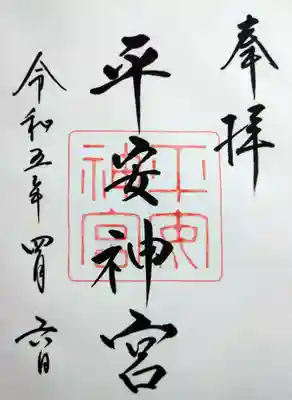 奉拝
平安神宮
平安神宮
令和五年四月六日